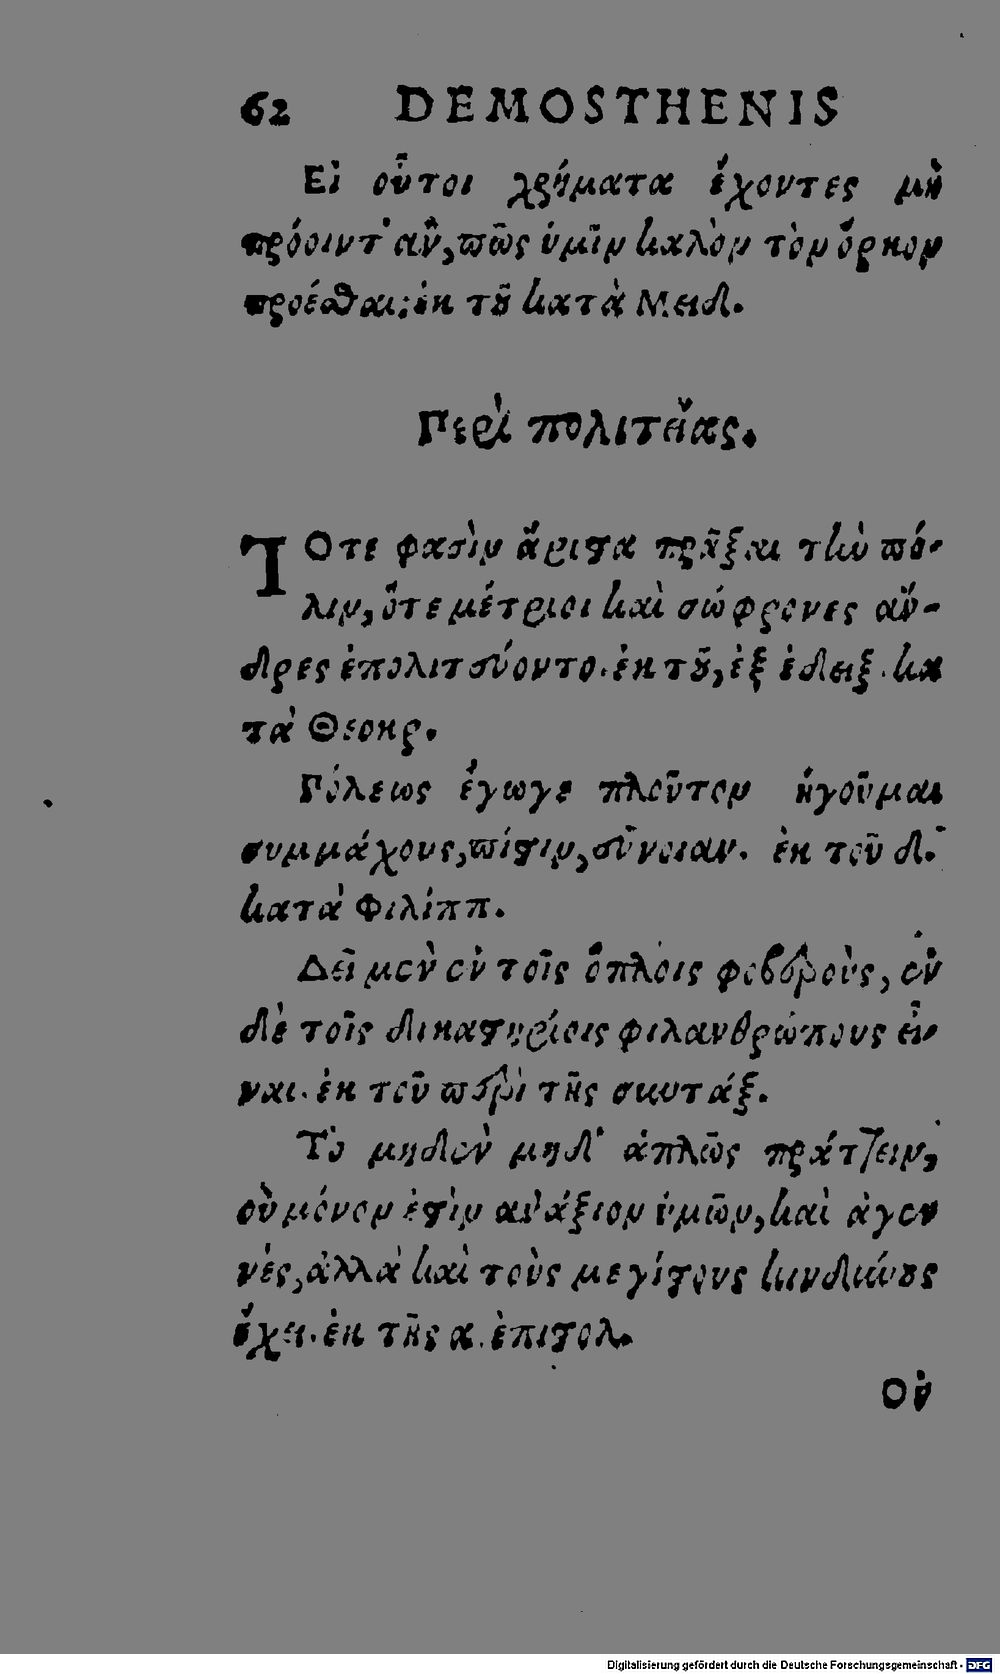 62 DEMOSTHENIS
Εἰ οὗτοι χρήματα ἔχοντες μὴ
πρόοιντ' ἂν, πῶς ὑμῖν καλὸν τὸν ὅρκον
προέσθαι; ἐκ τοῦ κατὰ Μειδ.
Περὶ πολιτείας.
ΤΟτε φασὶν ἄριστα πρᾶξαι τὴν πό-
λιν, ὅτε μέτριοι καὶ σώφρονες ἄν-
δρες ἐπολιτεύοντο. ἐκ τοῦ, ἐξ ἐδειξ. κα
τὰ Θεοκρ.
Πόλεως ἔγωγε πλοῦτον ἡγοῦμαι
συμμάχους, πίστιν, εὔνοιαν. ἐκ τοῦ δ.
κατὰ Φιλίππ.
Δεῖ μὲν ἐν τοῖς ὅπλοις φοβεροὺς, ἐν
δὲ τοῖς δικαστηρίοις φιλανθρώπους εἶ-
ναι. ἐκ τοῦ περὶ τῆς συντάξ.
Τὸ μηδὲν μηδ' ἁπλῶς πράττειν,
οὐ μόνον ἐστὶν ἀνάξιον ὑμῶν, καὶ ἀγεν
νές, ἀλλὰ καὶ τοὺς μεγίστους κινδύνους
ἔχει. ἐκ τῆς α. ἐπιστολ.
Οὐ
Digitalisierung gefördert durch die Deutsche Forschungsgemeinschaft - DFG